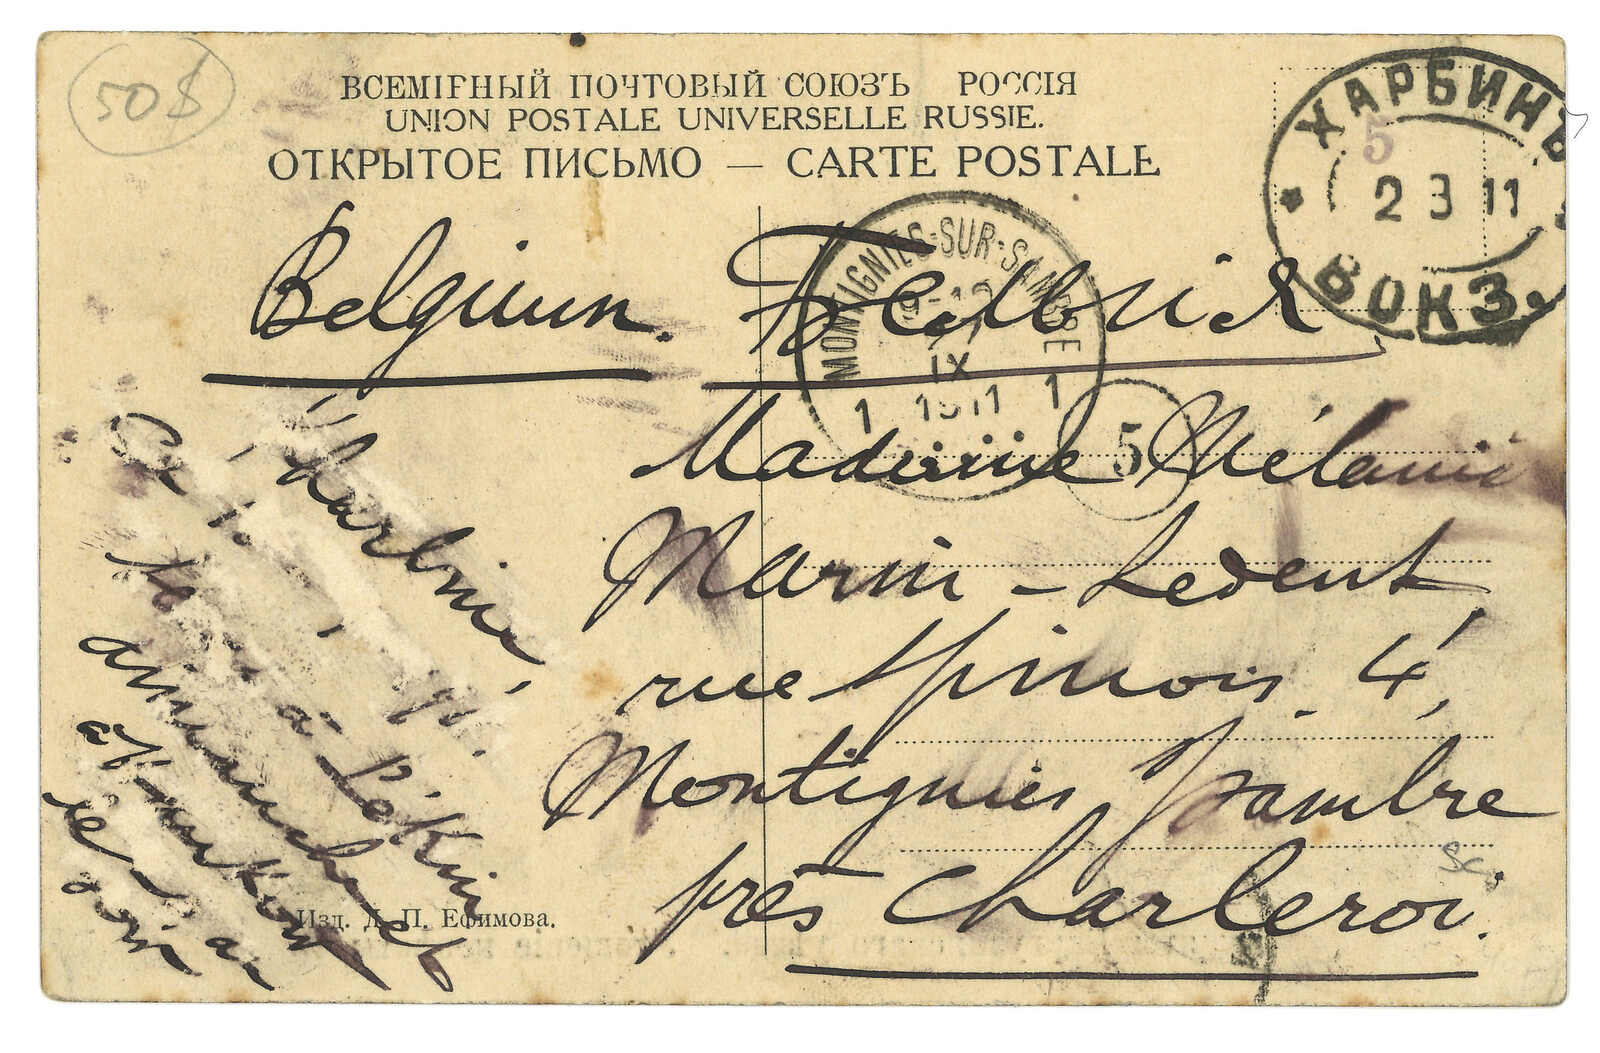 50$
ВСЕМІРНЫЙ ПОЧТОВЫЙ СОЮЗЪ РОССІЯ
UNION POSTALE UNIVERSELLE RUSSIE.
ОТКРЫТОЕ ПИСЬМО — CARTE POSTALE
ХАРБИНЪ
5
2 3 11
ВОКЗ.
MONTIGNIES-SUR-SAMBRE
IX
1 1911 1
5
Belgium. Бельгія
Madame Mélanie
Marin-Ledent,
rue Spinois, 4,
Montignies s/Sambre
près Charleroi.
Charbin,
à Pékin
dimanche
à Moukden
Изд. Д. П. Ефимова.